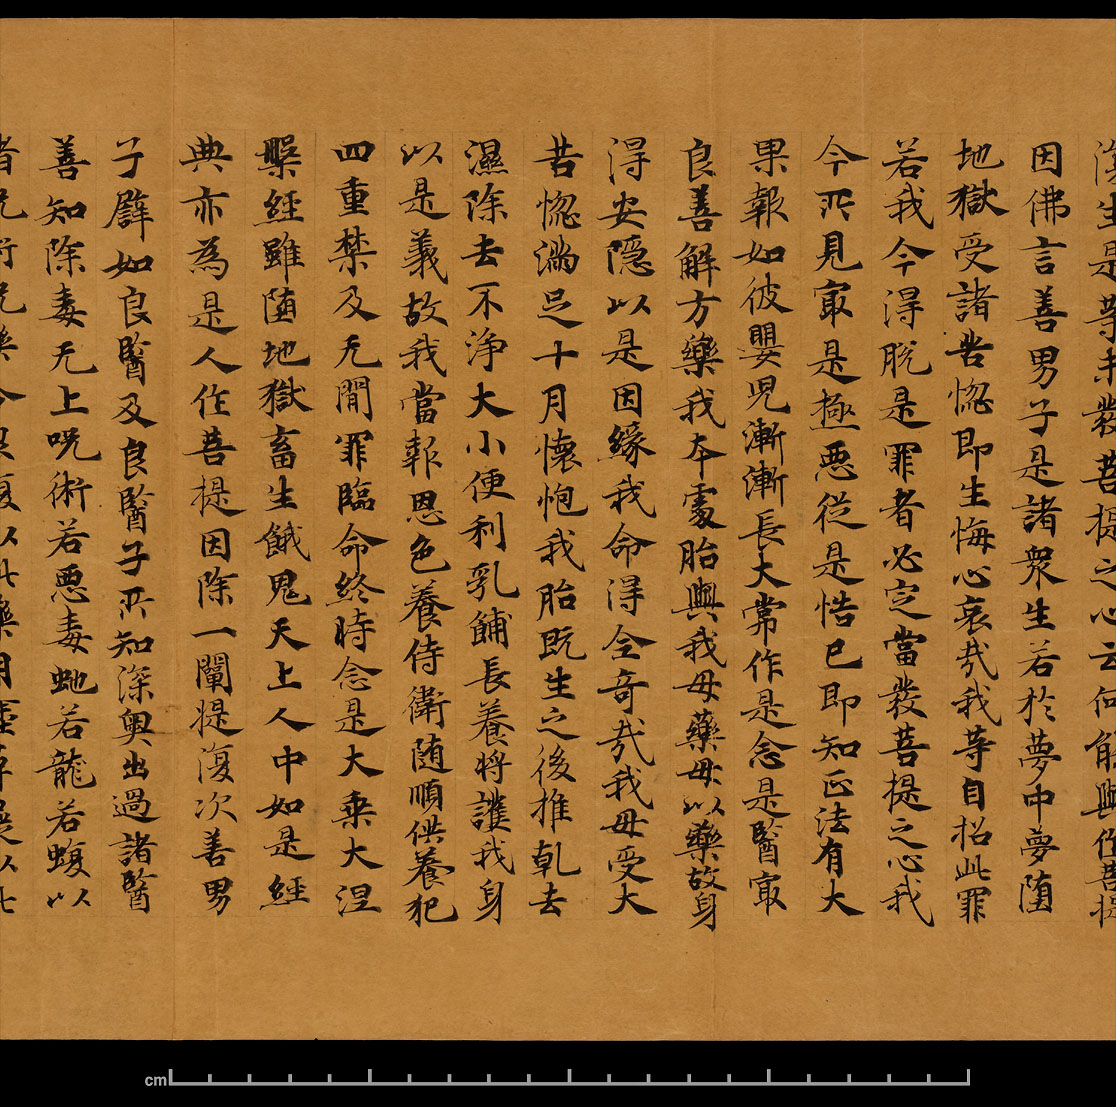 復生是等未發菩提之心云何能與作菩提
因佛言善男子是諸衆生若於夢中夢堕
地獄受諸苦惚即生悔心哀㢤我等自招此罪
若我今得脫是罪者必定當發菩提之心我
今所見㝡是極悪從是悟已即知正法有大
果報如彼嬰児漸漸長大常作是念是醫㝡
良善解方藥我夲處胎與我母藥母以藥故身
得安隱以是因縁我命得全奇㢤我母受大
苦惚滿足十月懷抱我胎既生之後推乹去
濕除去不淨大小便利乳餔長養將護我身
以是義故我當報恩色養侍衛随順供養犯
四重禁及无閒罪臨命終時念是大乗大涅
槃經雖堕地獄畜生餓鬼天上人中如是經
典亦為是人作菩提因除一闡提復次善男
子譬如良醫及良醫子所知深奥出過諸醫
善知除毒无上呪術若悪毒虵若龍若蝮以